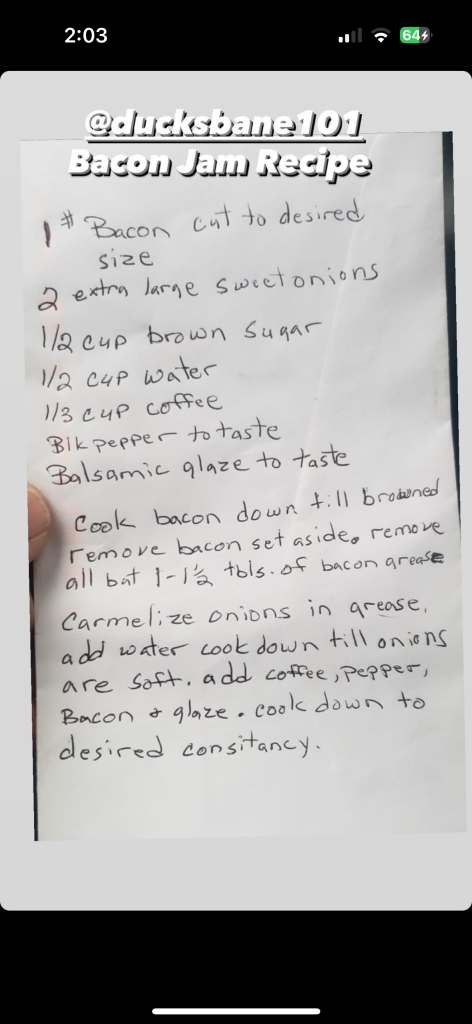 2:03
64
@ducksbane101
Bacon Jam Recipe
1# Bacon cut to desired
size
2 extra large sweet onions
1/2 cup brown sugar
1/2 cup water
1/3 cup coffee
Blk pepper to taste
Balsamic glaze to taste
Cook bacon down till browned
remove bacon set aside. remove
all but 1-1½ tbls. of bacon grease
Carmelize onions in grease,
add water cook down till onions
are soft. add coffee, pepper,
Bacon & glaze. cook down to
desired consitancy.